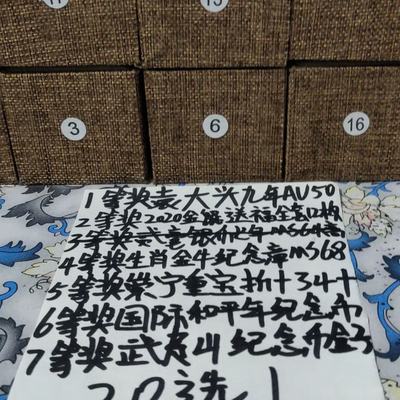 3
6
16
1等奖袁大头九年AU50
2等奖2020金鼠送福全套12枚
3等奖武童银币七年MS64
4等奖生肖金牛纪念章MS68
5等奖崇宁重宝折十34十
6等奖国际和平年纪念币
7等奖武夷山纪念币
20选1